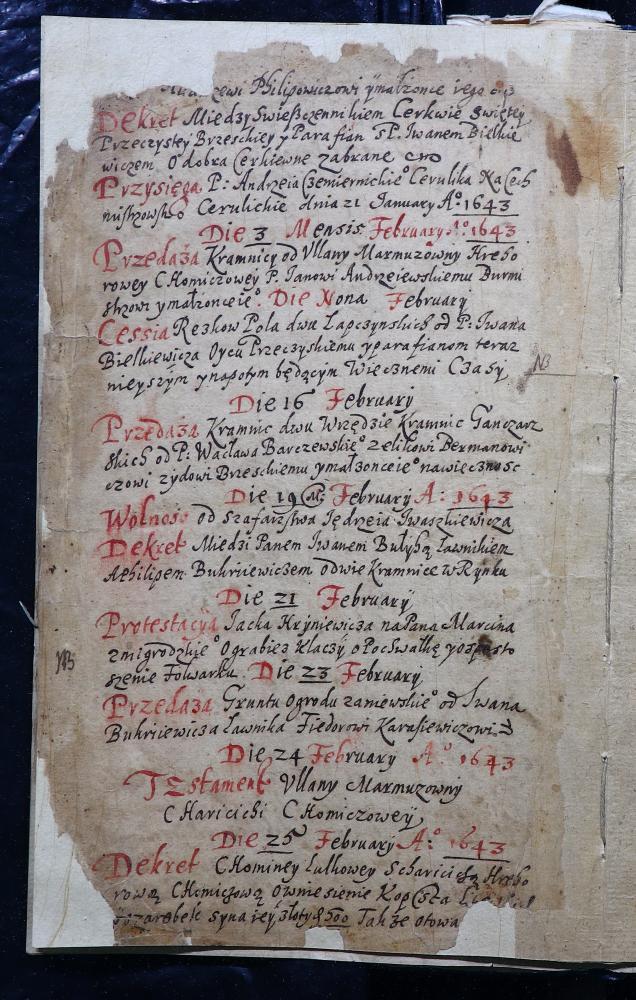 Philipowiczowi y małzonce iego
Dekret Miedzy Swieszczennikiem Cerkwie Swiętey
Przeczystey Brzeskiey y Parafian sP. Iwanem Bielkie
wiczem O dobra Cerkiewne zabrane
Przysięga P: Andrzeia Czemiernickieo Cerulika Na Cech
mistrzowstwo Cerulickie dnia 21 January Ao: 1643
Die 3 Mensis February Ao: 1643
Przedaża Kramnicy od Vllany Marmuzowny Hrebo
rowey CHomiczowey P. Janowi Andrzeiewskiemu Burmi
strzowi y małzonceieo. Die Nona February
Cessia Rezkow Pola dwu Lapczynskich od P: Iwana
Bielkiewicza Oycu Przeczyskiemu y parafianom teraz
nieyszym y napotym będącym Wiecznemi Czasy
NB
Die 16 February
Przedaża Kramnic dwu Wrzędzie Kramnic Ganczarz
skich od P: Wacława Barczewskieo Zelikowi Bermanowi
czowi zydowi Brzeskiemu y małzonceieo nawieczność
Die 19 February A: 1643
Wolność od Szafarstwa Jędrzeia Iwaszkiewicza
Dekret Miedzi Panem Iwanem Bułyhą Ławnikiem
APhilipem Buhriiewiczem Odwie Kramnice w Rynku
Die 21 February
Protestacya Jacka Hryniewicza na Pana Marcina
Zmigrodzkieo Ograbież Klaczy o Pochwałkę y o spusto
szenie Folwarku. Die 23 February
NB
Przedaża Gruntu Ogrodu Zaniewskieo od Iwana
Buhriiewicza Ławnika Fiedorowi Karasiewiczowi
Die 24 February Ao: 1643
Testament Vllany Marmuzowny
CHaricichi CHomiczowey
Die 25 February Ao: 1643
Dekret CHominey Lulkowey Hrebo
rową CHomiczową Owniesienie Kop Sta
zarobek syna iey złoty 500 Takze otowa